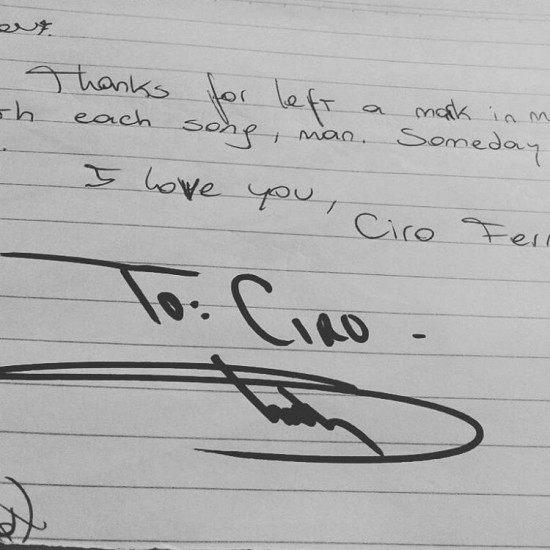 Thanks for left a mark in m
th each song, man. Someday
I love you,
Ciro Ferr
To: Ciro -